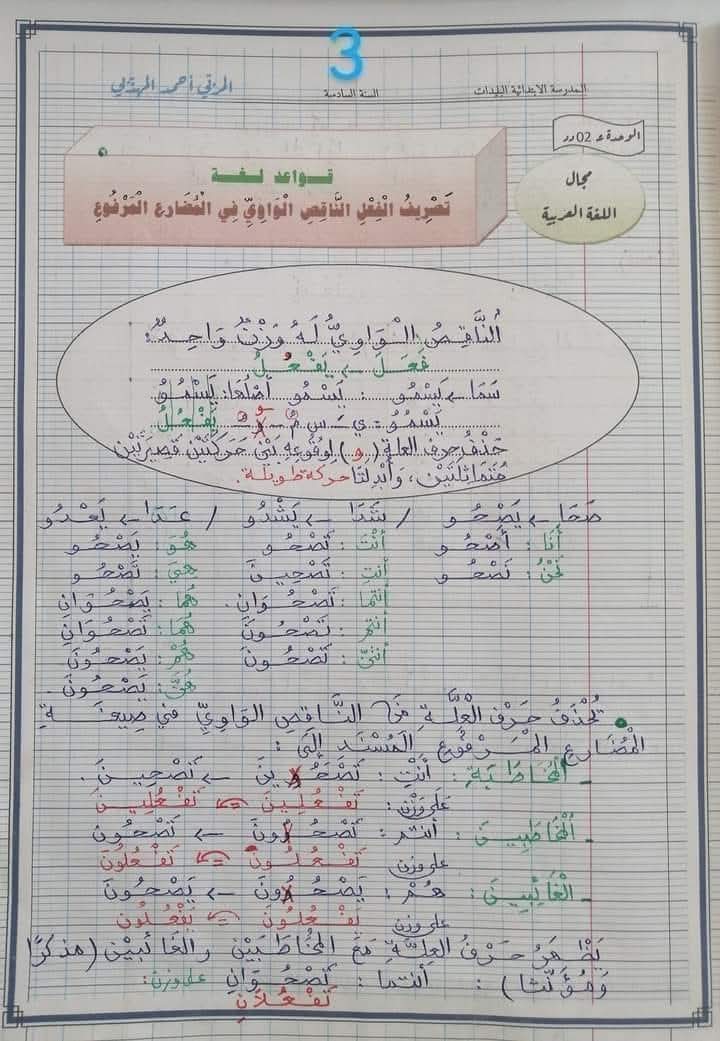 3
المدرسة الابتدائية البليدات
السنة السادسة
المربّي أحمد الهذلي
الوحدة ع 02 دد
مجال
اللغة العربية
قـواعد لـغـة
تَصْرِيفُ الْفِعْلِ النَّاقِصِ الْوَاوِيِّ فِي الْمُضَارِعِ الْمَرْفُوعِ
النَّاقِصُ الْوَاوِيُّ لَهُ وَزْنٌ وَاحِدٌ:
فَعَلَ ← يَفْعُلُ
سَمَا ← يَسْمُو : يَسْمُو أَصْلُهَا: يَسْمُوُ
يَسْمُوُ = يَ س م و يَفْعُلُ
حُذِفَ حرف العلة (و) لِوُقُوعِهِ بَيْنَ حَرَكَتَيْنِ قَصِيرَتَيْنِ
مُتَمَاثِلَتَيْنِ، وَأُبْدِلَتَا حركة طويلة.
صَحَا ← يَصْحُو / شَدَا ← يَشْدُو / عَدَا ← يَعْدُو
أَنَا : أَصْحُو أَنْتَ : تَصْحُو هُوَ : يَصْحُو
نَحْنُ : نَصْحُو أَنْتِ : تَصْحِينَ هِيَ : تَصْحُو
أَنْتُمَا : تَصْحُوَانِ. هُمَا : يَصْحُوَانِ
أَنْتُمْ : تَصْحُونَ هُمَا : تَصْحُوَانِ
أَنْتُنَّ : تَصْحُونَ هُمْ : يَصْحُونَ
هُنَّ : يَصْحُونَ.
• يُحْذَفُ حَرْفُ الْعِلَّةِ مِنَ النَّاقِصِ الوَاوِيِّ فِي صِيغَةِ
الْمُضَارِعِ الْمَرْفُوعِ الْمُسْنَدِ إِلَى :
- الْمُخَاطَبَةِ : أَنْتِ : تَصْحُوِينَ ← تَصْحِينَ.
عَلَى وَزْنِ : تَفْعُلِينَ ⇐ تَفْعُلِينَ
- الْمُخَاطَبِينَ : أَنْتُمْ : تَصْحُوُونَ ← تَصْحُونَ
على وزن تَفْعُلُونَ ⇐ تَفْعُلُونَ
- الْغَائِبِينَ : هُمْ : يَصْحُوُونَ ← يَصْحُونَ
على وزن يَفْعُلُونَ ⇐ يَفْعُلُونَ
يَظْهَرُ حَرْفُ الْعِلَّةِ مَعَ الْمُخَاطَبَيْنِ والغَائبَيْنِ (مذكرًا
وَمُؤَنَّثًا) : أنتما : تَصْحُوَانِ على وزن:
تَفْعُلَانِ